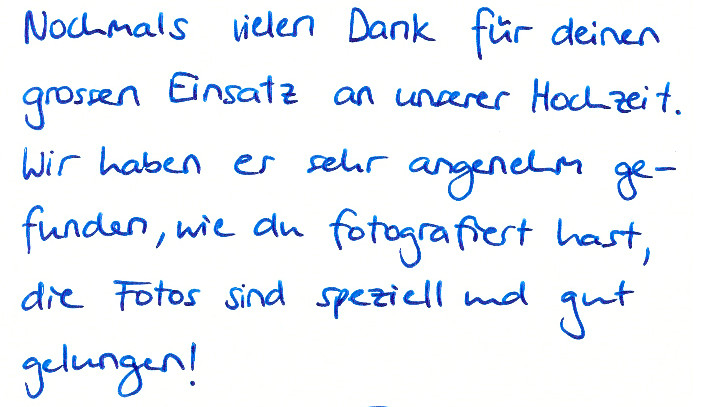 Nochmals vielen Dank für deinen
grossen Einsatz an unserer Hochzeit.
Wir haben er sehr angenehm ge-
funden, wie du fotografiert hast,
die Fotos sind speziell und gut
gelungen!